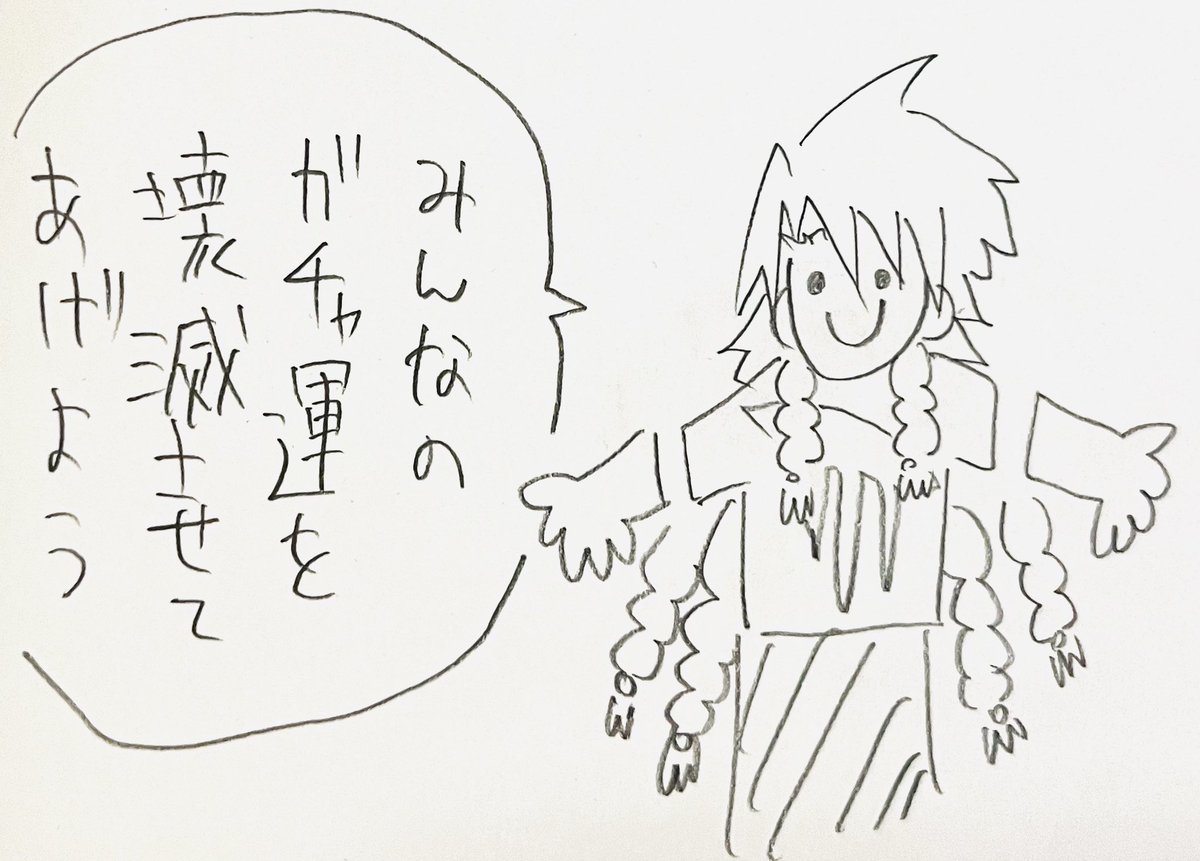 みんなの
ガチャ運を
壊滅させて
あげよう